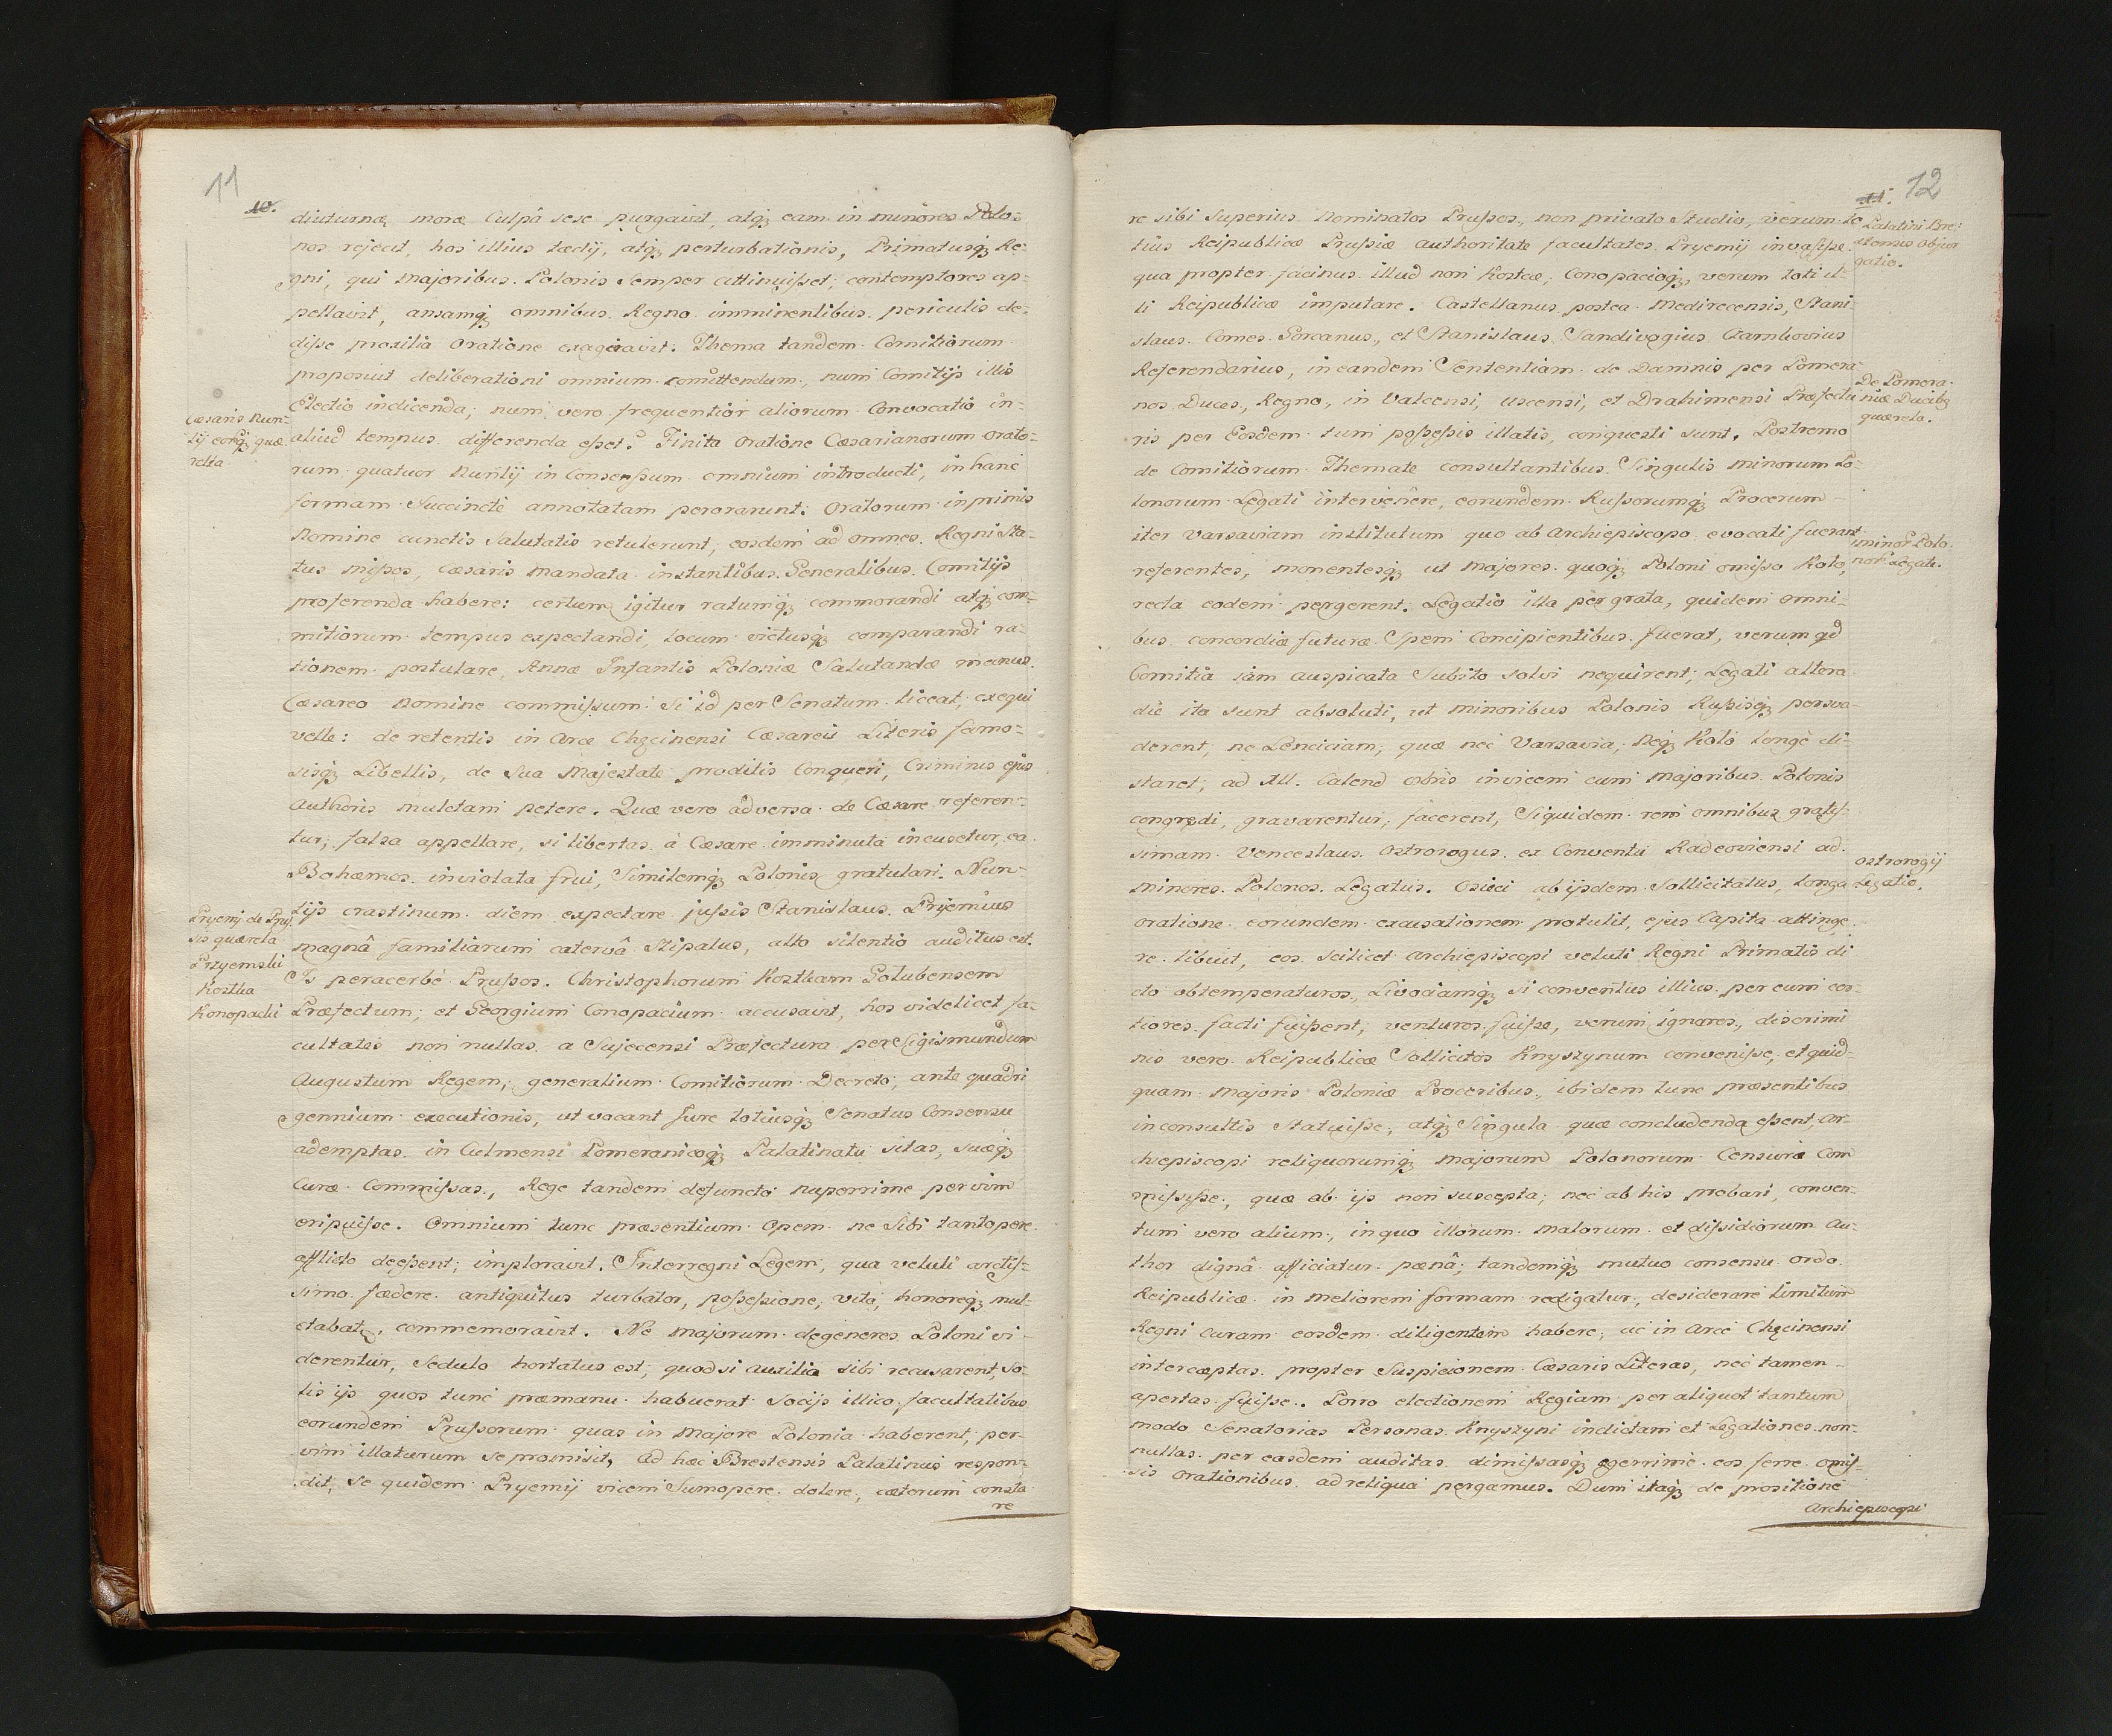 11
10.
diuturnæ moræ Culpâ sese purgavit, atq; eam in minores Polo-
nos rejecit, hos illius tædij, atq; perturbationis, Primatusq; Re-
gni, qui majoribus Polonis semper attinuisset; contemptores ap-
pellavit, ansamq; omnibus Regno imminentibus periculis de-
disse prolixiâ Oratione exageravit. Thema tandem Comitiorum
proposuit deliberationi omnium comittendum, num Comitijs illis
Electio indicenda; num vero frequentior aliorum Convocatio in
Cæsaris Nun-
tij eorq; quæ
rella
aliud tempus differenda esset? Finita Oratione Cæsarianorum Orato-
rum quatuor Nuntij in Consessum omnium introducti, in hanc
formam Succinctè annotatam perorarunt. Oratorum inprimis
Nomine cunctis Salutatis retulerunt, eosdem ad omnes Regni Sta-
tus missos, Cæsaris Mandata instantibus Generalibus Comitijs
proferenda habere: certum igitur ratumq; commorandi atq; com-
mitiorum tempus expectandi, locum victusq; comparandi ra-
tionem postulare, Annæ Infantis Poloniæ Salutandæ munus
Cæsareo Nomine commissum si id per Senatum liceat, exequi
velle: de retentis in Arce Chęcinensi Cæsareis Literis famo-
sisq; Libellis, de Sua Majestate proditis Conqueri, Criminis ejus
Authoris mulctam petere. Quæ vero adversa de Cæsare referen-
tur, falsa appellare, si libertas à Cæsare imminuta incusetur, ea
Bohæmos inviolata frui, Similemq; Polonis gratulari. Nun-
Pryemj de Prus
sis quærela
Przyemski
Kostka
Konopacki
tijs crastinum diem expectare jussis Stanislaus Pryemius
magnâ familiarum catervâ Stipatus, alto silentio auditus est.
Is peracerbè Prussos Christophorum Kostkam Golubensem
Præfectum, et Georgium Conopacium accusavit, hos videlicet fa-
cultates non nullas a Sujecensi Præfectura per Sigismundum
Augustum Regem, generalium Comitiorum Decreto, ante quadri
gennium executionis, ut vocant Jure totiusq; Senatus Consensu
ademptas in Culmensi Pomeranicoq; Palatinatu sitas, suæq;
Curæ Commissas, Rege tandem defuncto nuperrime per vim
eripuisse. Omnium tunc præsentium Opem ne Sibi tantopere
afflicto deessent; imploravit. Interregni Legem, qua veluti arctis-
simo fædere antiquitus turbator, possessione, vitâ, honoreq; mul-
ctabatę, commemoravit. Ne majorum degeneres Poloni vi-
derentur, Sedulo hortatus est; quod si auxilia sibi recusarent, so-
lis ijs quos tunc præmanu habuerat Socijs illico facultatibus
eorundem Prussorum quas in Majore Polonia haberent, per
vim illaturum se promisit, Ad hæc Brestensis Palatinus respon-
dit, se quidem Pryemij vicem Summopere dolere, cæterum consta
re
12
11.
re sibi Superius Nominatos Prussos, non privato Studio, verum to
tius Reipublicæ Prussiæ Authoritate facultates Pryemij invasisse.
Palatini Bre-
stensis Objur
gatio.
qua propter facinus illud non Kostcæ, Conopacioq; verum toti il-
li Reipublicæ imputare. Castellanus postea Medirecensis, Stani-
slaus Comes Gorcanus, et Stanislaus Sandivogius Czarnkovius
Referendarius, in eandem Sententiam de Damnis per Pomera-
nos Duces, Regno, in Valcensi, uscensi, et Drahimensi Præfectu
De Pomera-
niæ Ducibq;
quærela.
ris per Eosdem tum possessis illatis, conquesti sunt. Postremo
de Comitiorum Themate consultantibus Singulis minorum Po-
lonorum Legati intervenêre, eorundem Russorumq; Procerum
iter Varsaviam institutum quo ab Archiepiscopo evocati fuerant
referentes, monentesq; ut Majores quoq; Poloni omisso Kolo,
minor Polo
nor Legati.
recta eodem pergerent. Legatio illa pèr grata, quidem omni-
bus concordiæ futuræ Spem Concipientibus fuerat, verum qd
Comitia iàm auspicata Subito solvi nequirent, Legati altera
die ita sunt absoluti, ut minoribus Polonis Russisq; persva-
derent, ne Lenciciam, quæ nec Varsavia, Neq; Kolo longè di-
staret, ad XII. Calend 8bris invicem cum Majoribus Polonis
congredi, gravarentur, facerent, Siquidem rem omnibus gratis-
simam. Venceslaus Ostrorogus ex Conventu Radeoviensi ad
Ostrorogij
Legatio.
minores Polonos Legatus. Osieci ab ijsdem Sollicitatus, longa
oratione eorundem excusationem protulit, ejus Capita attinge-
re libuit, eos scilicet Archiepiscopi veluti Regni Primatis di
cto obtemperaturos, Livociamq; si conventus illius per eum cer-
tiores facti fuissent, venturos fuisse, verum ignaros, discrimi
nis vero Reipublicæ Sollicitos Knyszynum convenisse, et quid-
quam Majoris Poloniæ Proceribus, ibidem tunc præsentibus
inconsultis Statuisse, atq; Singula quæ concludenda essent, Ar-
chiepiscopi reliquorumq; Majorum Polonorum Censuræ Com
misisse, quæ ab ijs non suscepta, nec ab his probari, conven-
tum vero alium, in quo illorum malorum et dissidiorum Au-
thor dignâ afficiatur pænâ, tandemq; mutuo consensu ordo
Reipublicæ in meliorem formam redigatur, desiderare limitum
Regni curam eosdem diligentem habere, ac in Arce Chęcinensi
interceptas propter Suspicionem Cæsaris Literas, nec tamen
apertas fuisse. Porro electionem Regiam per aliquot tantum
modo Senatorias Personas Knyszyni indictam et Legationes non-
nullas per easdem auditas dimissasq; ęgerrimè eos ferre. omis-
sis Orationibus ad reliqua pergamus. Dum itaq; de propositione
Archiepiscopi